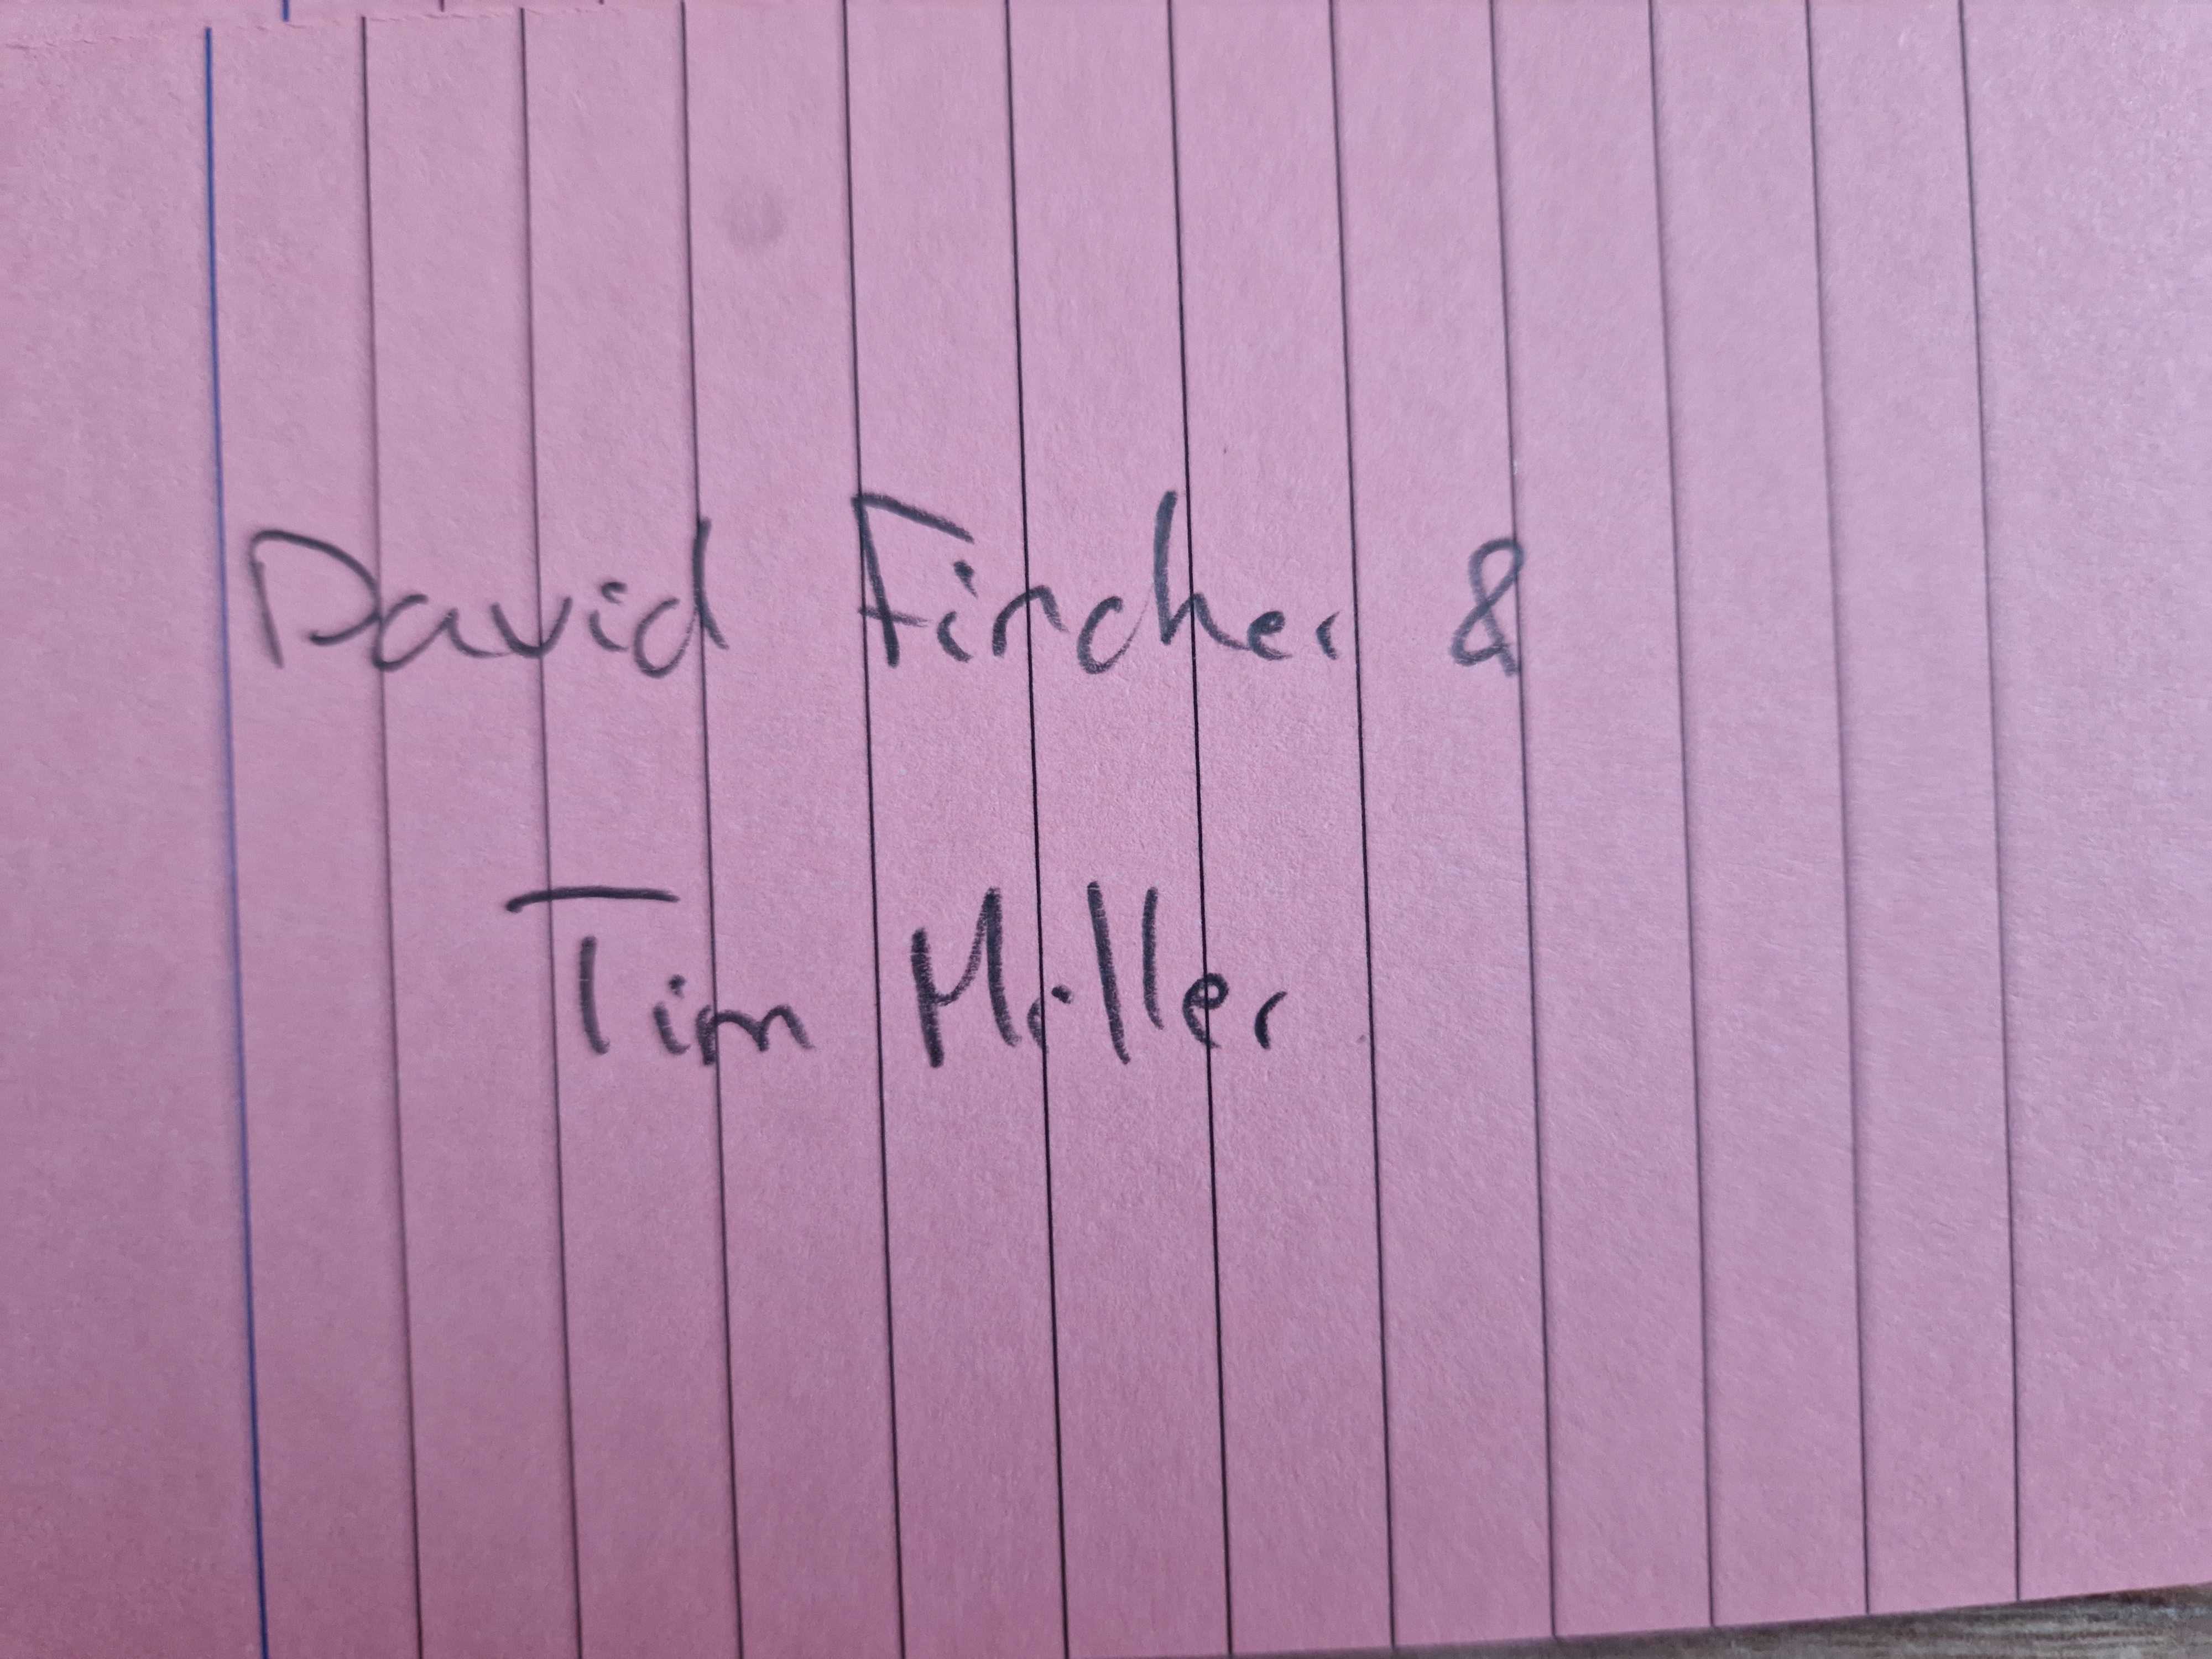 David Fincher &
Tim Miller